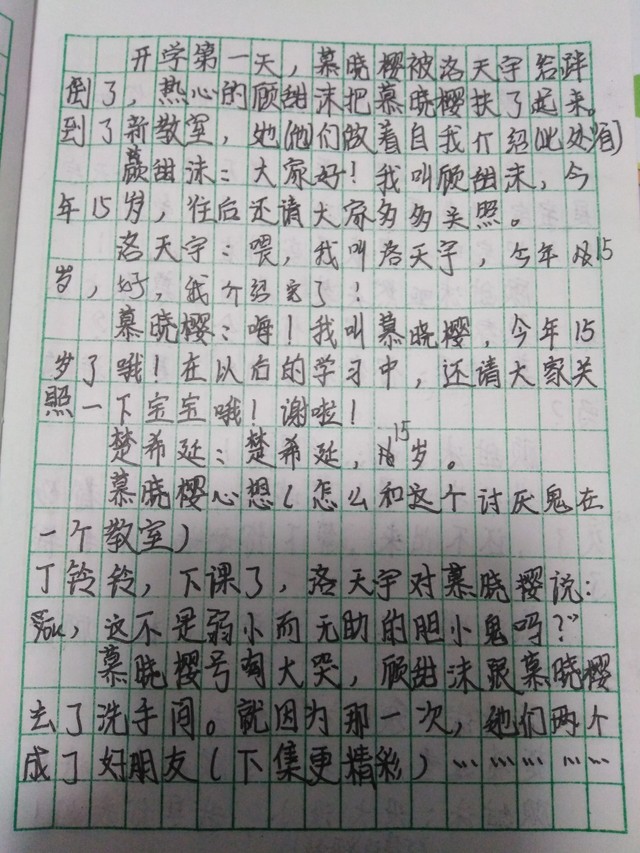 开学第一天，慕晓樱被洛天宇给绊
倒了，热心的顾甜沫把慕晓樱扶了起来。
到了新教室，她(他)们做着自我介绍(此处省)
顾甜沫：大家好！我叫顾甜沫，今
年15岁，往后还请大家多多关照。
洛天宇：喂，我叫洛天宇，今年15
岁，好，我介绍完了！
慕晓樱：嗨！我叫慕晓樱，今年15
岁了哦！在以后的学习中，还请大家关
照一下宝宝哦！谢啦！
楚希延：楚希延，15岁。
慕晓樱心想(怎么和这个讨厌鬼在
一个教室)
丁铃铃，下课了，洛天宇对慕晓樱说：
这不是弱小而无助的胆小鬼吗？”
慕晓樱号啕大哭，顾甜沫跟慕晓樱
去了洗手间。就因为那一次，她们两个
成了好朋友(下集更精彩)……………